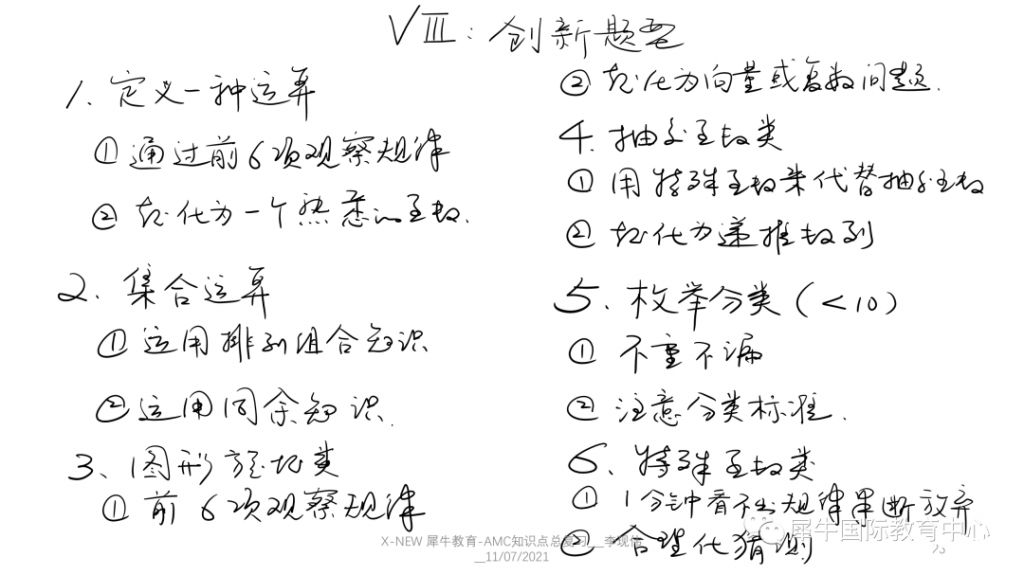 VIII：创新题型
1. 定义一种运算
① 通过前6项观察规律
② 转化为一个熟悉的函数.
2. 集合运算
① 运用排列组合知识
② 运用同余知识.
3. 图形变换类
① 前6项观察规律
② 转化为向量或复数问题.
4. 抽象函数类
① 用特殊函数来代替抽象函数
② 转化为递推数列
5. 枚举分类（<10）
① 不重不漏
② 注意分类标准.
6. 特殊函数类
① 1分钟看不出规律果断放弃
② 合理化猜测
X-NEW 犀牛教育-AMC知识点总复习__李现伟
__11/07/2021
犀牛国际教育中心